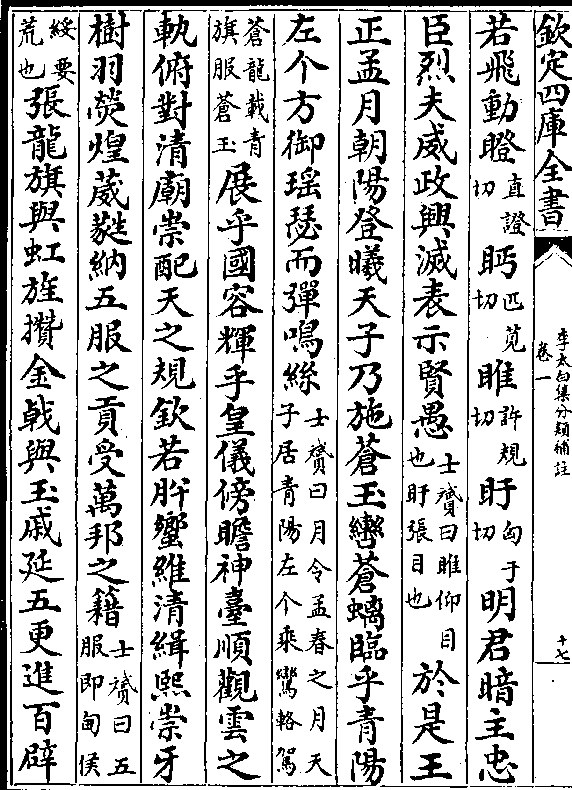 欽定四庫全書
李太白集分類補註
卷一
十七
若飛動瞪直證切眄匹莧切睢許規切盱匈于切明君暗主忠
臣烈夫威政興滅表示賢愚士贇曰睢仰目也盱張目也於是王
正孟月朝陽登曦天子乃施蒼玉轡蒼螭臨乎青陽
左个方御瑶瑟而彈鳴絲士贇曰月令孟春之月天子居青陽左个乘鸞輅駕
蒼龍載青旗服蒼玉展乎國容輝乎皇儀傍瞻神臺順觀雲之
軌俯對清廟崇配天之規欽若肹蠁維清緝熙崇牙
樹羽熒煌葳蕤納五服之貢受萬邦之籍士贇曰五服即甸侯
綏要荒也張龍旗與虹旌攢金戟與玉戚延五更進百辟